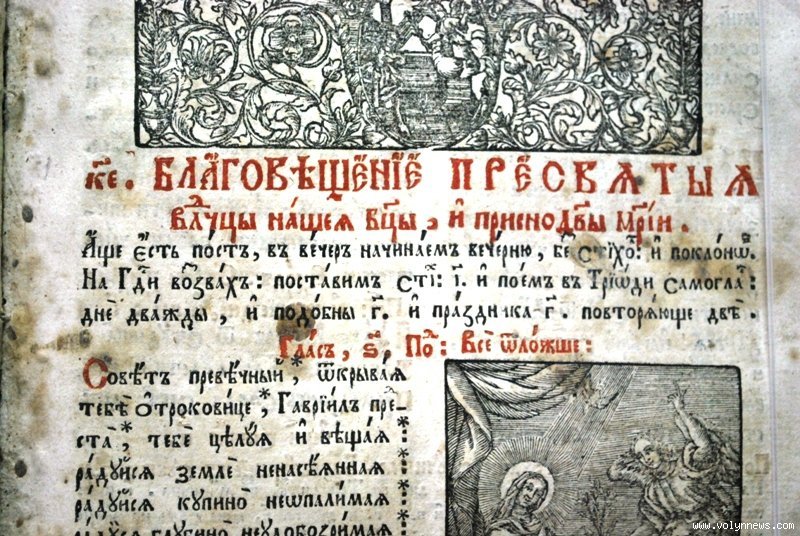 к҃е. БЛАГОВѢЩЕНІЕ ПРЕСВЯТЫЯ
вл҃чцы нашея бц҃ы, и приснодв҃ы мр҃іи.
Аще есть постъ, въ вечеръ начинаемъ вечерню, без̾ стіхо: и поклонѡ.
На Гд҃и воззвахъ: поставимъ сті: і҃. и поемъ въ Тріѡди самогла:
дне дважды, и подобны г҃. и праздника г҃. повторяюще двѐ.
Гласъ, ѕ҃, По: Все ѿложше:
Совѣтъ превѣчный,* ѿкрывая
тебѣ отроковице,* Гавріилъ пре-
ста,* тебе цѣлуя и вѣщая:
радуйся земле ненасѣянная
радуйся купино неѡпалимая
радуйся глубино неудобозримая
www.volynnews.com